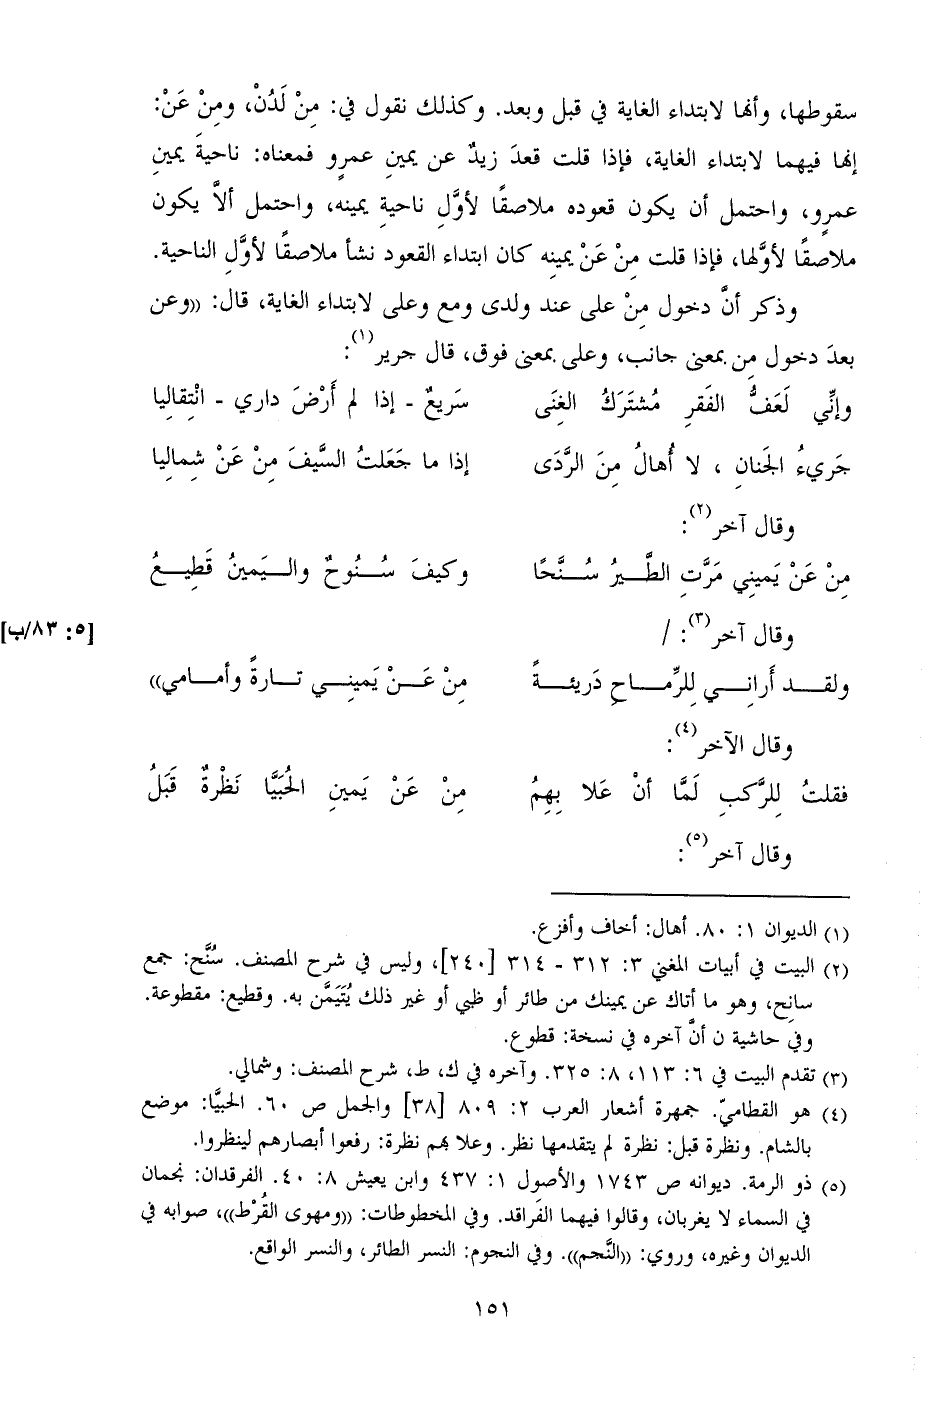 سقوطها، وأنها لابتداء الغاية في قبل وبعد. وكذلك نقول في: مِنْ لَدُنْ، ومِنْ عَنْ:
إنها فيهما لابتداء الغاية، فإذا قلت قعدَ زيدٌ عن يمينِ عمرٍو فمعناه: ناحيةَ يمينِ
عمرٍو، واحتمل أن يكون قعوده ملاصقًا لأوَّل ناحيةِ يمينه، واحتمل ألاَّ يكون
ملاصقًا لأوَّلها، فإذا قلت مِنْ عَنْ يمينه كان ابتداء القعود نشأ ملاصقًا لأوَّل الناحية.
وذكر أنَّ دخول مِنْ على عند ولدى ومع وعلى لابتداء الغاية، قال: ((وعن
بعدَ دخول مِن بمعنى جانب، وعلى بمعنى فوق، قال جرير(١):
وإنِّي لَعَفُّ الفَقرِ مُشتَرَكُ الغِنَى سَريعٌ - إذا لم أَرْضَ داري - انْتِقاليا
جَريءُ الجَنانِ ، لا أُهالُ مِنَ الرَّدَى إذا ما جَعَلتُ السَّيفَ مِنْ عَنْ شِماليا
وقال آخر(٢):
مِنْ عَنْ يَميني مَرَّتِ الطَّيرُ سُنَّحًا وكيفَ سُنوحٌ واليَمينُ قَطِيعُ
وقال آخر(٣): /
[٥: ٨٣/ب]
ولقد أَراني لِلرِّماحِ دَريئةً مِنْ عَنْ يَميني تارةً وأمامي))
وقال الآخر(٤):
فقلتُ لِلرَّكبِ لَمَّا أنْ عَلا بِهِمُ مِنْ عَنْ يَمينِ الحُبَيَّا نَظْرةٌ قَبَلُ
وقال آخر(٥):
(١) الديوان ١: ٨٠. أهال: أخاف وأفزع.
(٢) البيت في أبيات المغني ٣: ٣١٢ - ٣١٤ [٢٤٠]، وليس في شرح المصنف. سُنَّح: جمع
سانِح، وهو ما أتاك عن يمينك من طائر أو ظبي أو غير ذلك يُتَيَمَّن به. وقطيع: مقطوعة.
وفي حاشية ن أنَّ آخره في نسخة: قطوع.
(٣) تقدم البيت في ٦: ١١٣، ٨: ٣٢٥. وآخره في ك، ط، شرح المصنف: وشمالي.
(٤) هو القطاميّ. جمهرة أشعار العرب ٢: ٨٠٩ [٣٨] والجمل ص ٦٠. الحبيَّا: موضع
بالشام. ونظرة قبل: نظرة لم يتقدمها نظر. وعلا بهم نظرة: رفعوا أبصارهم لينظروا.
(٥) ذو الرمة. ديوانه ص ١٧٤٣ والأصول ١: ٤٣٧ وابن يعيش ٨: ٤٠. الفرقدان: نجمان
في السماء لا يغربان، وقالوا فيهما الفَراقد. وفي المخطوطات: ((ومهوى القُرْط))، صوابه في
الديوان وغيره، وروي: ((النَّجم)). وفي النجوم: النسر الطائر، والنسر الواقع.
١٥١